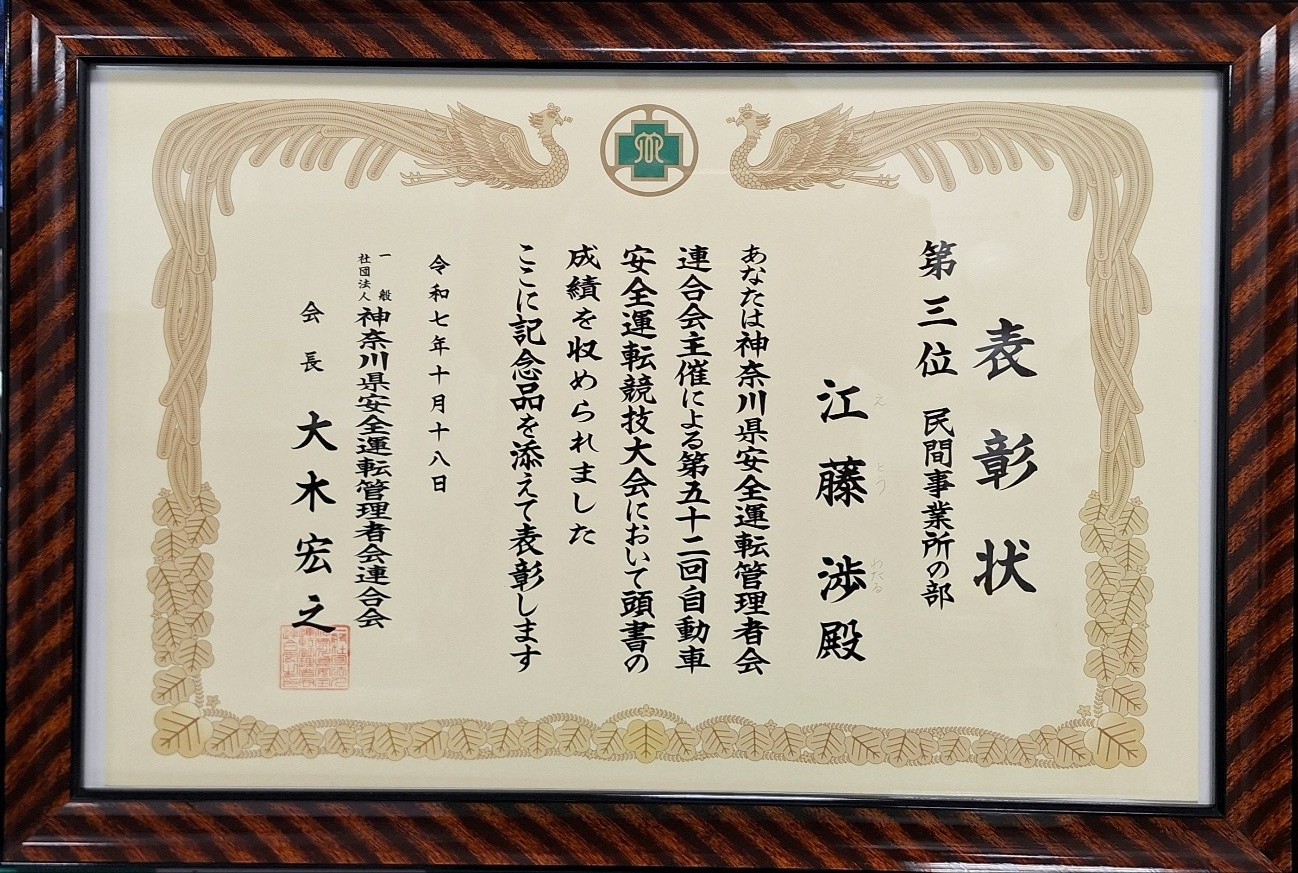 表彰状
第三位 民間事業所の部
江藤 渉殿
えとう わたる
あなたは神奈川県安全運転管理者会
連合会主催による第五十二回自動車
安全運転競技大会において頭書の
成績を収められました
ここに記念品を添えて表彰します
令和七年十月十八日
一般社団法人 神奈川県安全運転管理者会連合会
会長 大木宏之